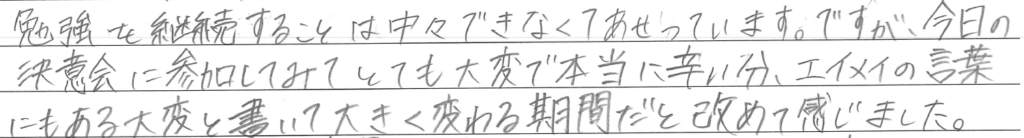 勉強を継続することは中々できなくてあせっています。ですが、今日の
決意会に参加してみてとても大変で本当に辛い分、エイメイの言葉
にもある大変と書いて大きく変わる期間だと改めて感じました。